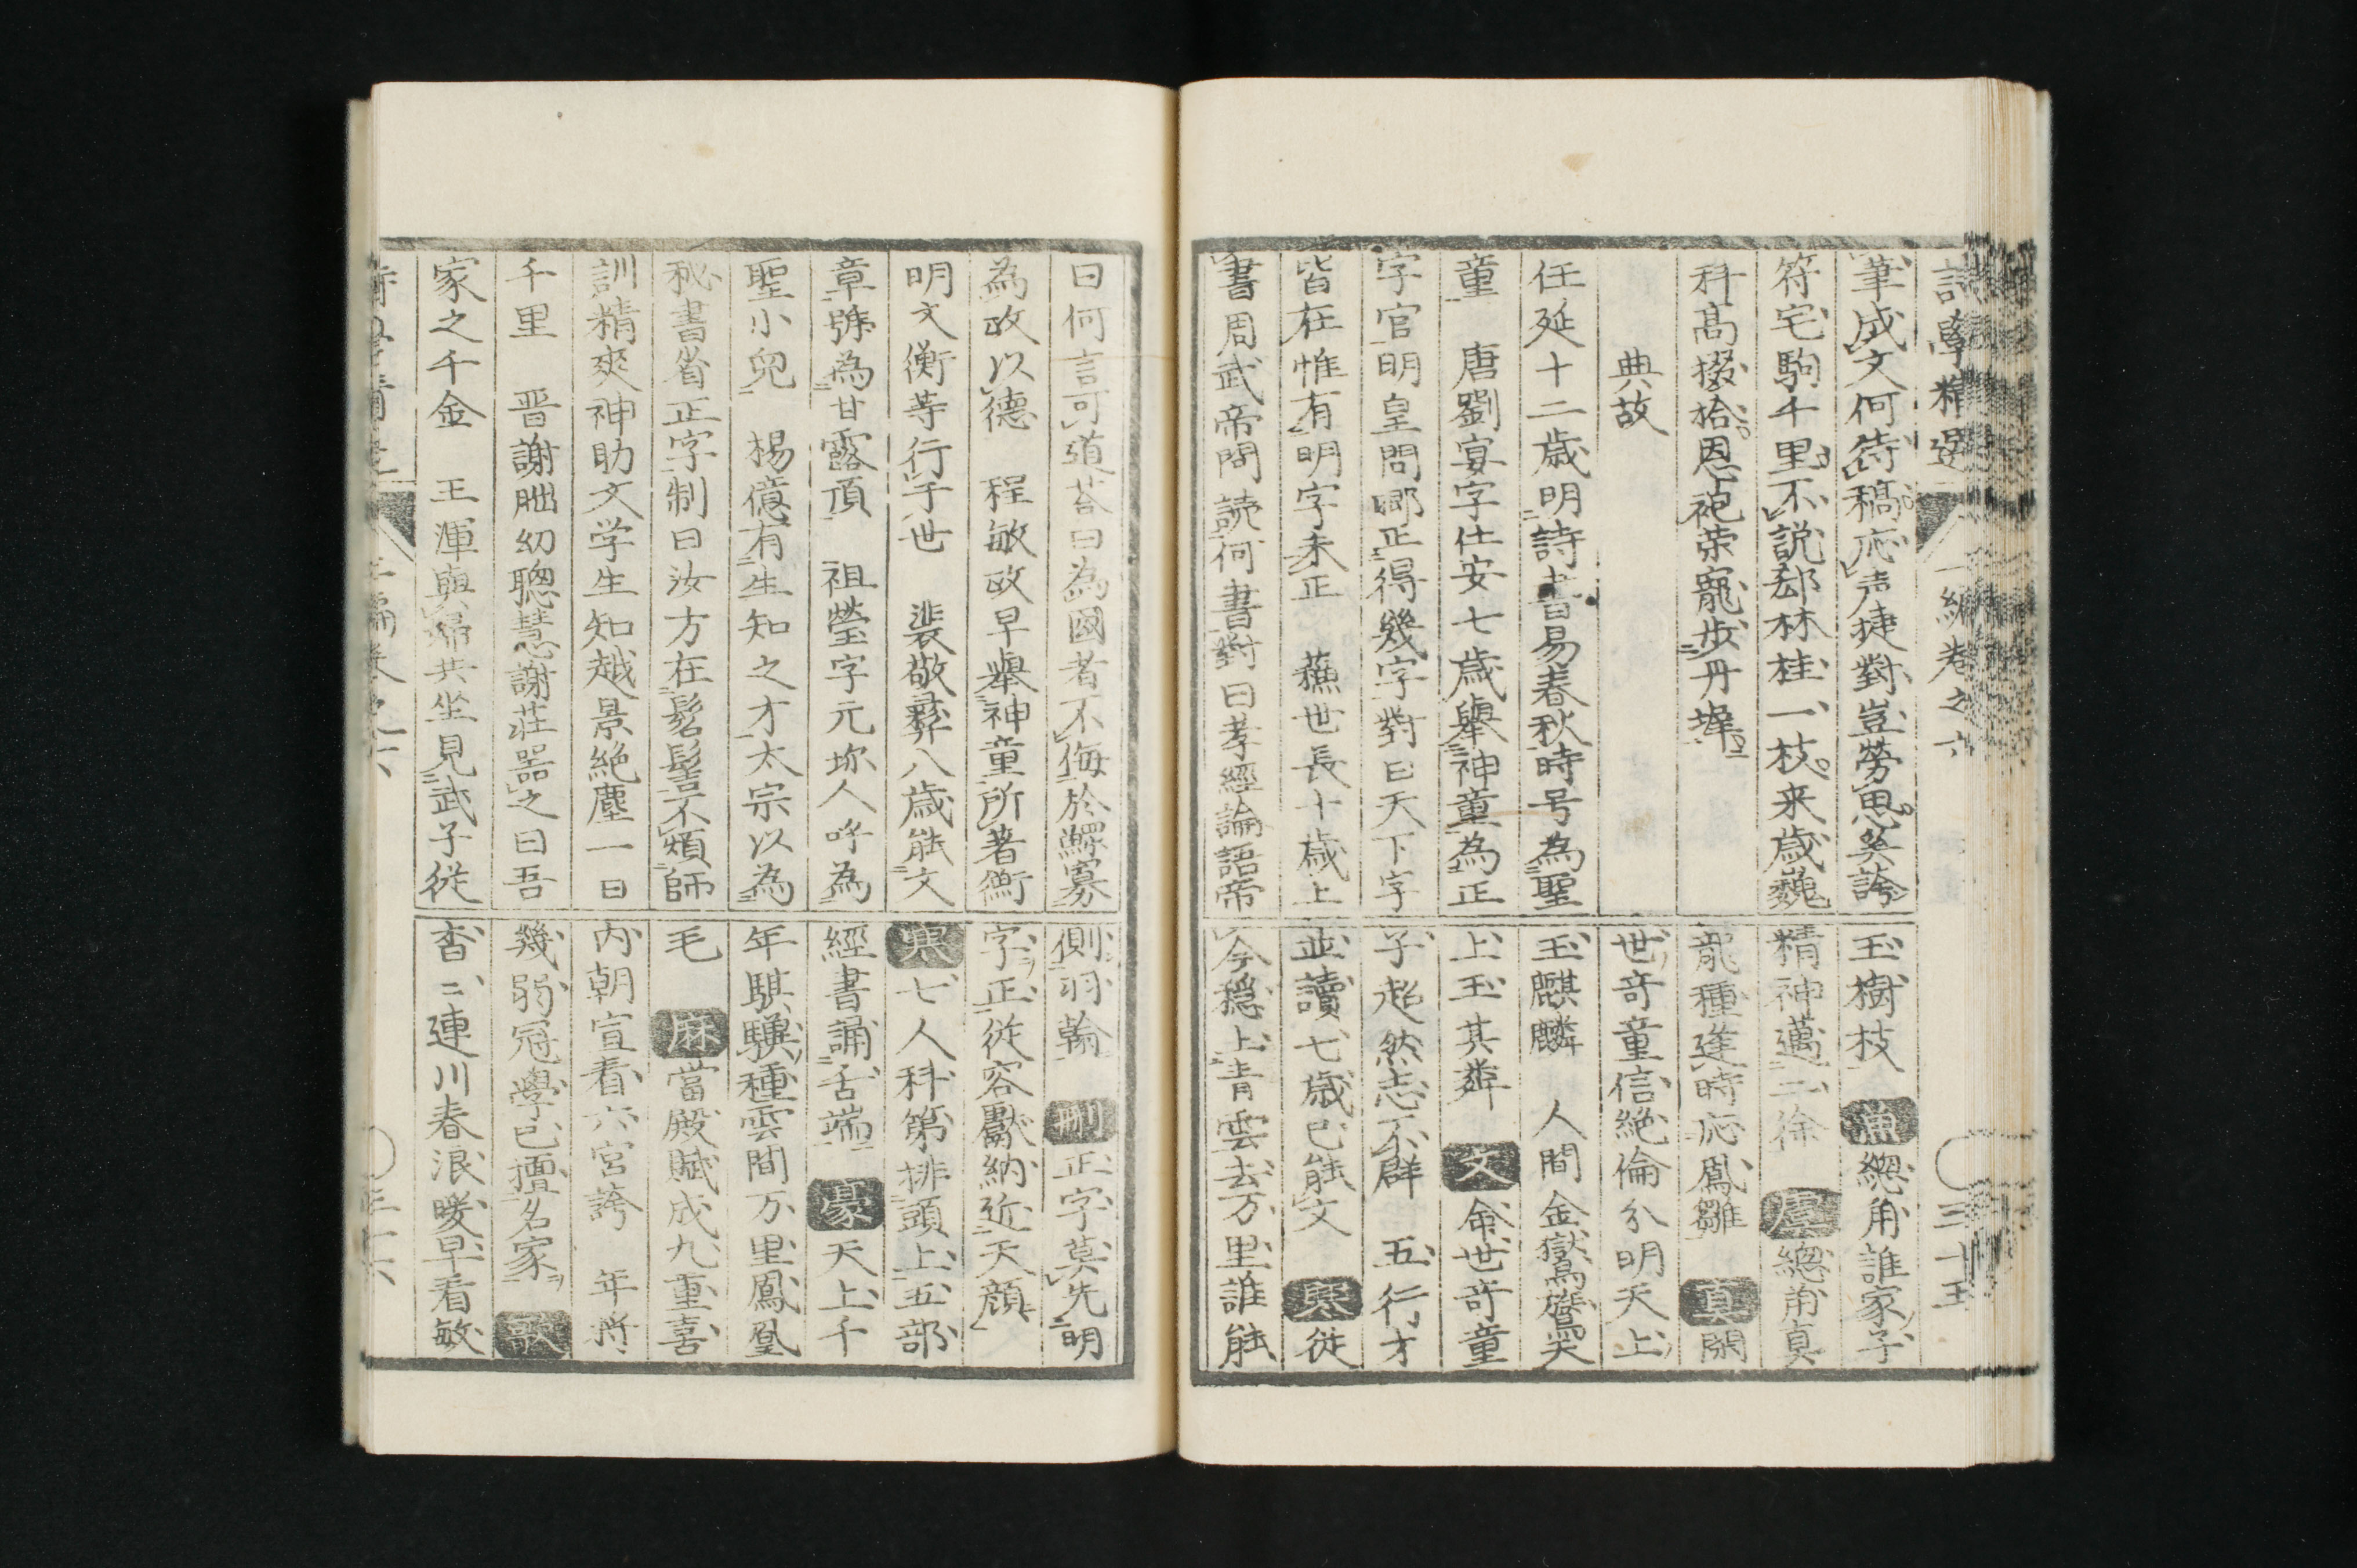 詩學精選 一編卷之六 三十五
筆成文何待稿応声捷對豈勞思羙誇
符宅駒千里不説郄林桂一枝来歳巍
科高掇拾恩袍荣寵步丹墀
典故
任延十二歳明詩書易春秋時号為聖
童 唐劉宴字仕安七歳舉神童為正
字官明皇問卿正得幾字對曰天下字
皆在惟有明字未正 蘓世長十歳上
書周武帝問読何書對曰孝經論語帝
玉樹枝 蕭總角誰家子
精神邁二徐 虞總角真
龍種逢時応鳳雛 真開
世奇童信絶倫分明天上
玉麒麟 人間金嶽鸑鷟天
上玉其粦 文命世奇童
子超然志不群 五行才
並讀七歳已能文 寒従
今穏上青雲去万里誰能
曰何言可道荅曰為國者不侮於鰥寡
為政以德 程敏政早舉神童所著衡
明文衡等行于世 裴敬彛八歳能文
章號為甘露頂 祖瑩字元珎人呼為
聖小兒 楊億有生知之才太宗以為
秘書省正字制曰汝方在髫髻不煩師
訓精爽神助文学生知越景絶塵一日
千里 晋謝朏幼聰慧謝莊噐之曰吾
家之千金 王渾與婦共坐見武子従
側羽翰 刪正字莫先明
字正従容獻納近天顔
寒七人科第排頭上五部
經書誦舌端 豪天上千
年騏驥種雲間万里鳳凰
毛 麻當殿賦成九重喜
内朝宣看六宮誇 年将
幾弱冠學已擅名家 歌
杳二連川春浪暖早看敏